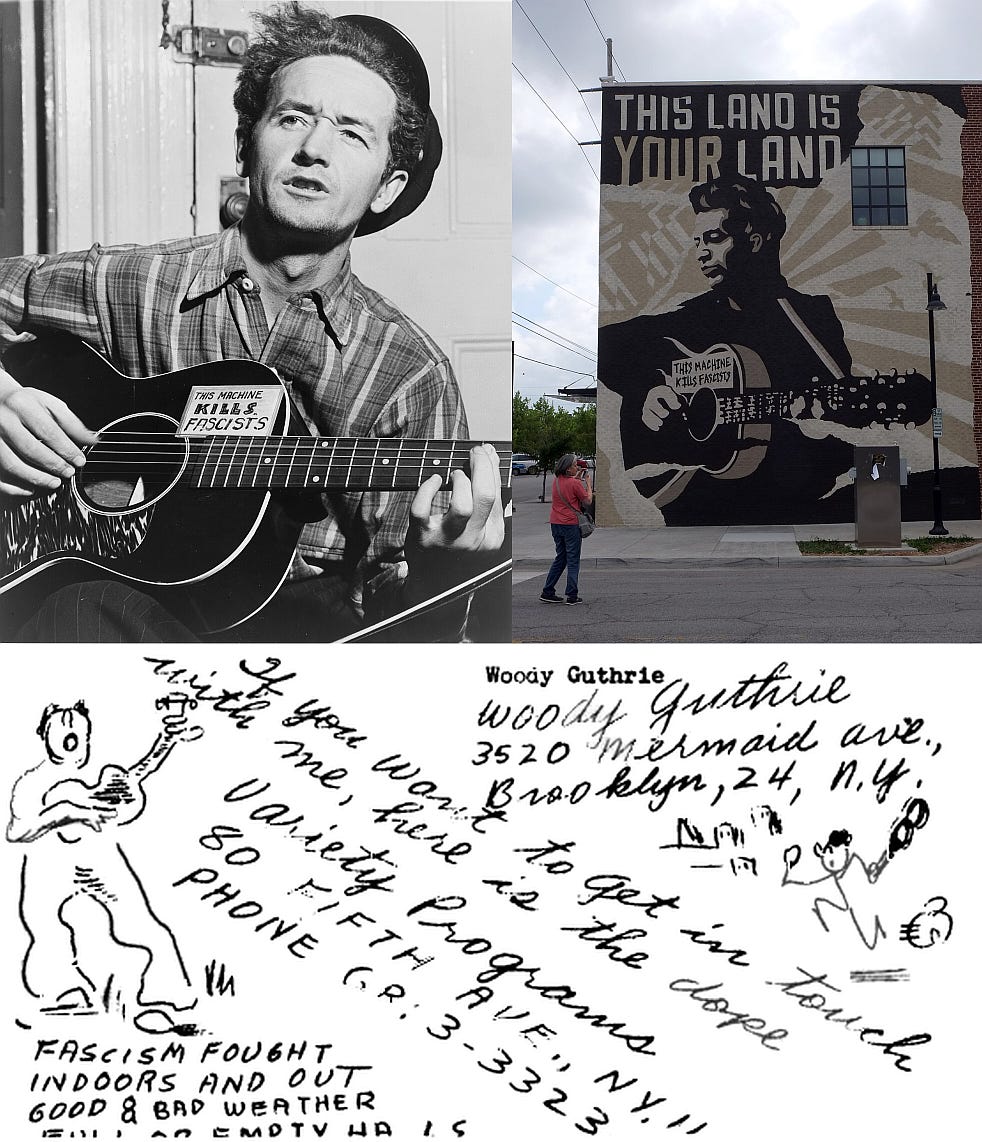 THIS MACHINE
KILLS
FASCISTS
THIS LAND IS
YOUR LAND
THIS MACHINE
KILLS FASCISTS
Woody Guthrie
Woody Guthrie
3520 Mermaid ave.,
Brooklyn, 24, N.Y.
If you want to get in touch
with me, here is the dope
Variety Programs
80 FIFTH AVE., NY. 11
PHONE GR. 3-3323
FASCISM FOUGHT
INDOORS AND OUT
GOOD & BAD WEATHER
FULL OR EMPTY